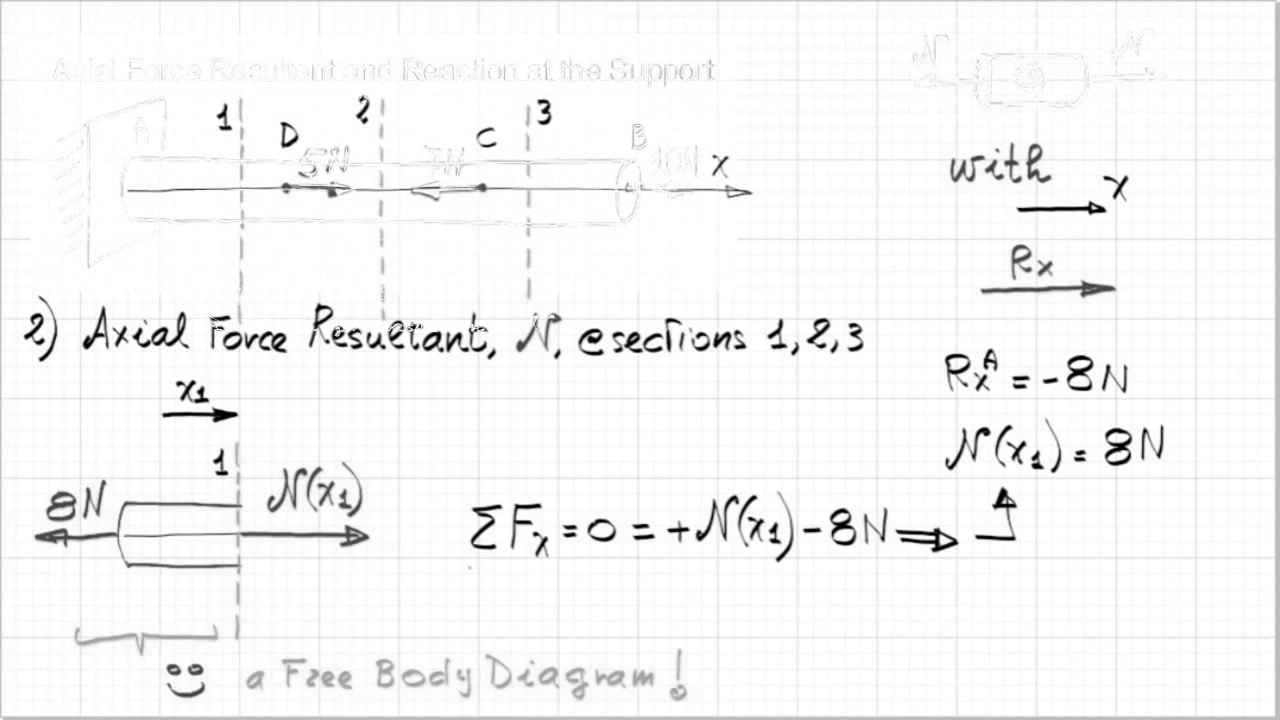 Axial Force Resultant and Reaction at the Support
N N
1 2 3
A D C B
5N 7N 10N x
with x
Rx
2) Axial Force Resultant, N, @sections 1,2,3
RxA = -8N
x1
N(x1) = 8N
1
8N N(x1)
ΣFx = 0 = +N(x1) - 8N ⇒
a Free Body Diagram!